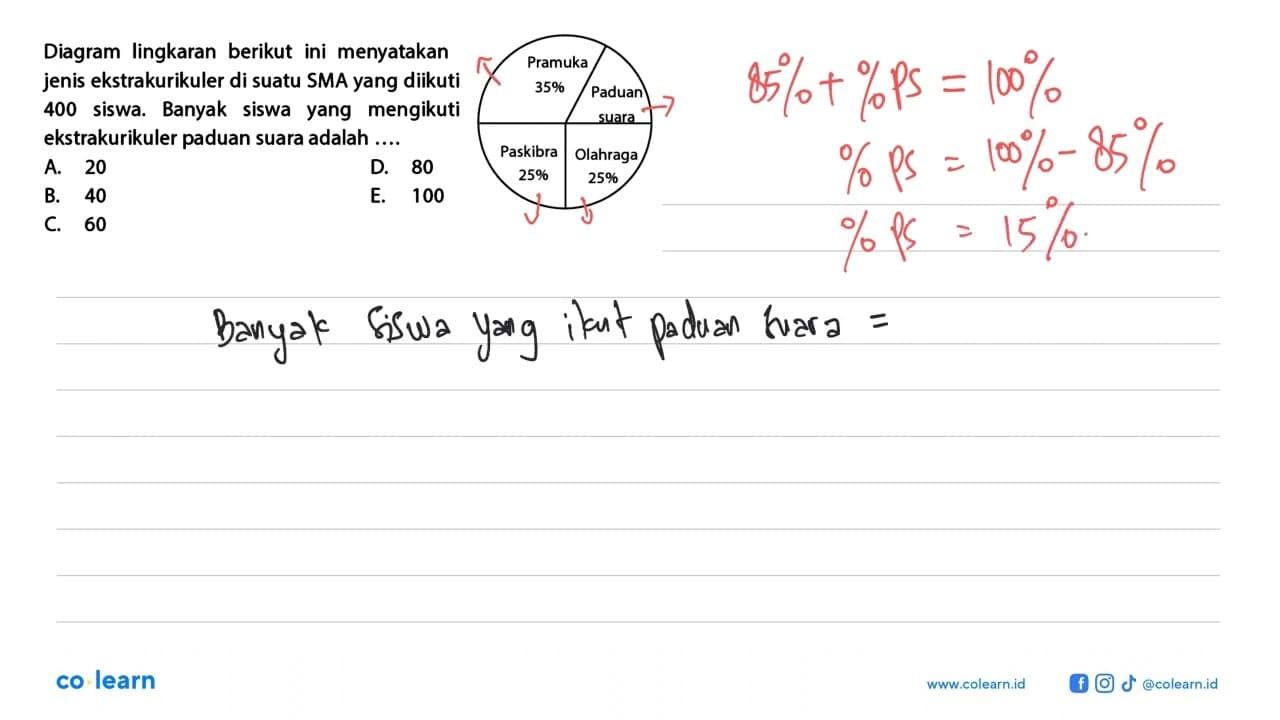 Diagram lingkaran berikut ini menyatakan
jenis ekstrakurikuler di suatu SMA yang diikuti
400 siswa. Banyak siswa yang mengikuti
ekstrakurikuler paduan suara adalah ....
A. 20
B. 40
C. 60
D. 80
E. 100
Pramuka
35%
Paduan
suara
Paskibra
25%
Olahraga
25%
85% + % PS = 100%
% PS = 100% - 85%
% PS = 15%.
Banyak siswa yang ikut paduan suara =
co learn
www.colearn.id
@colearn.id